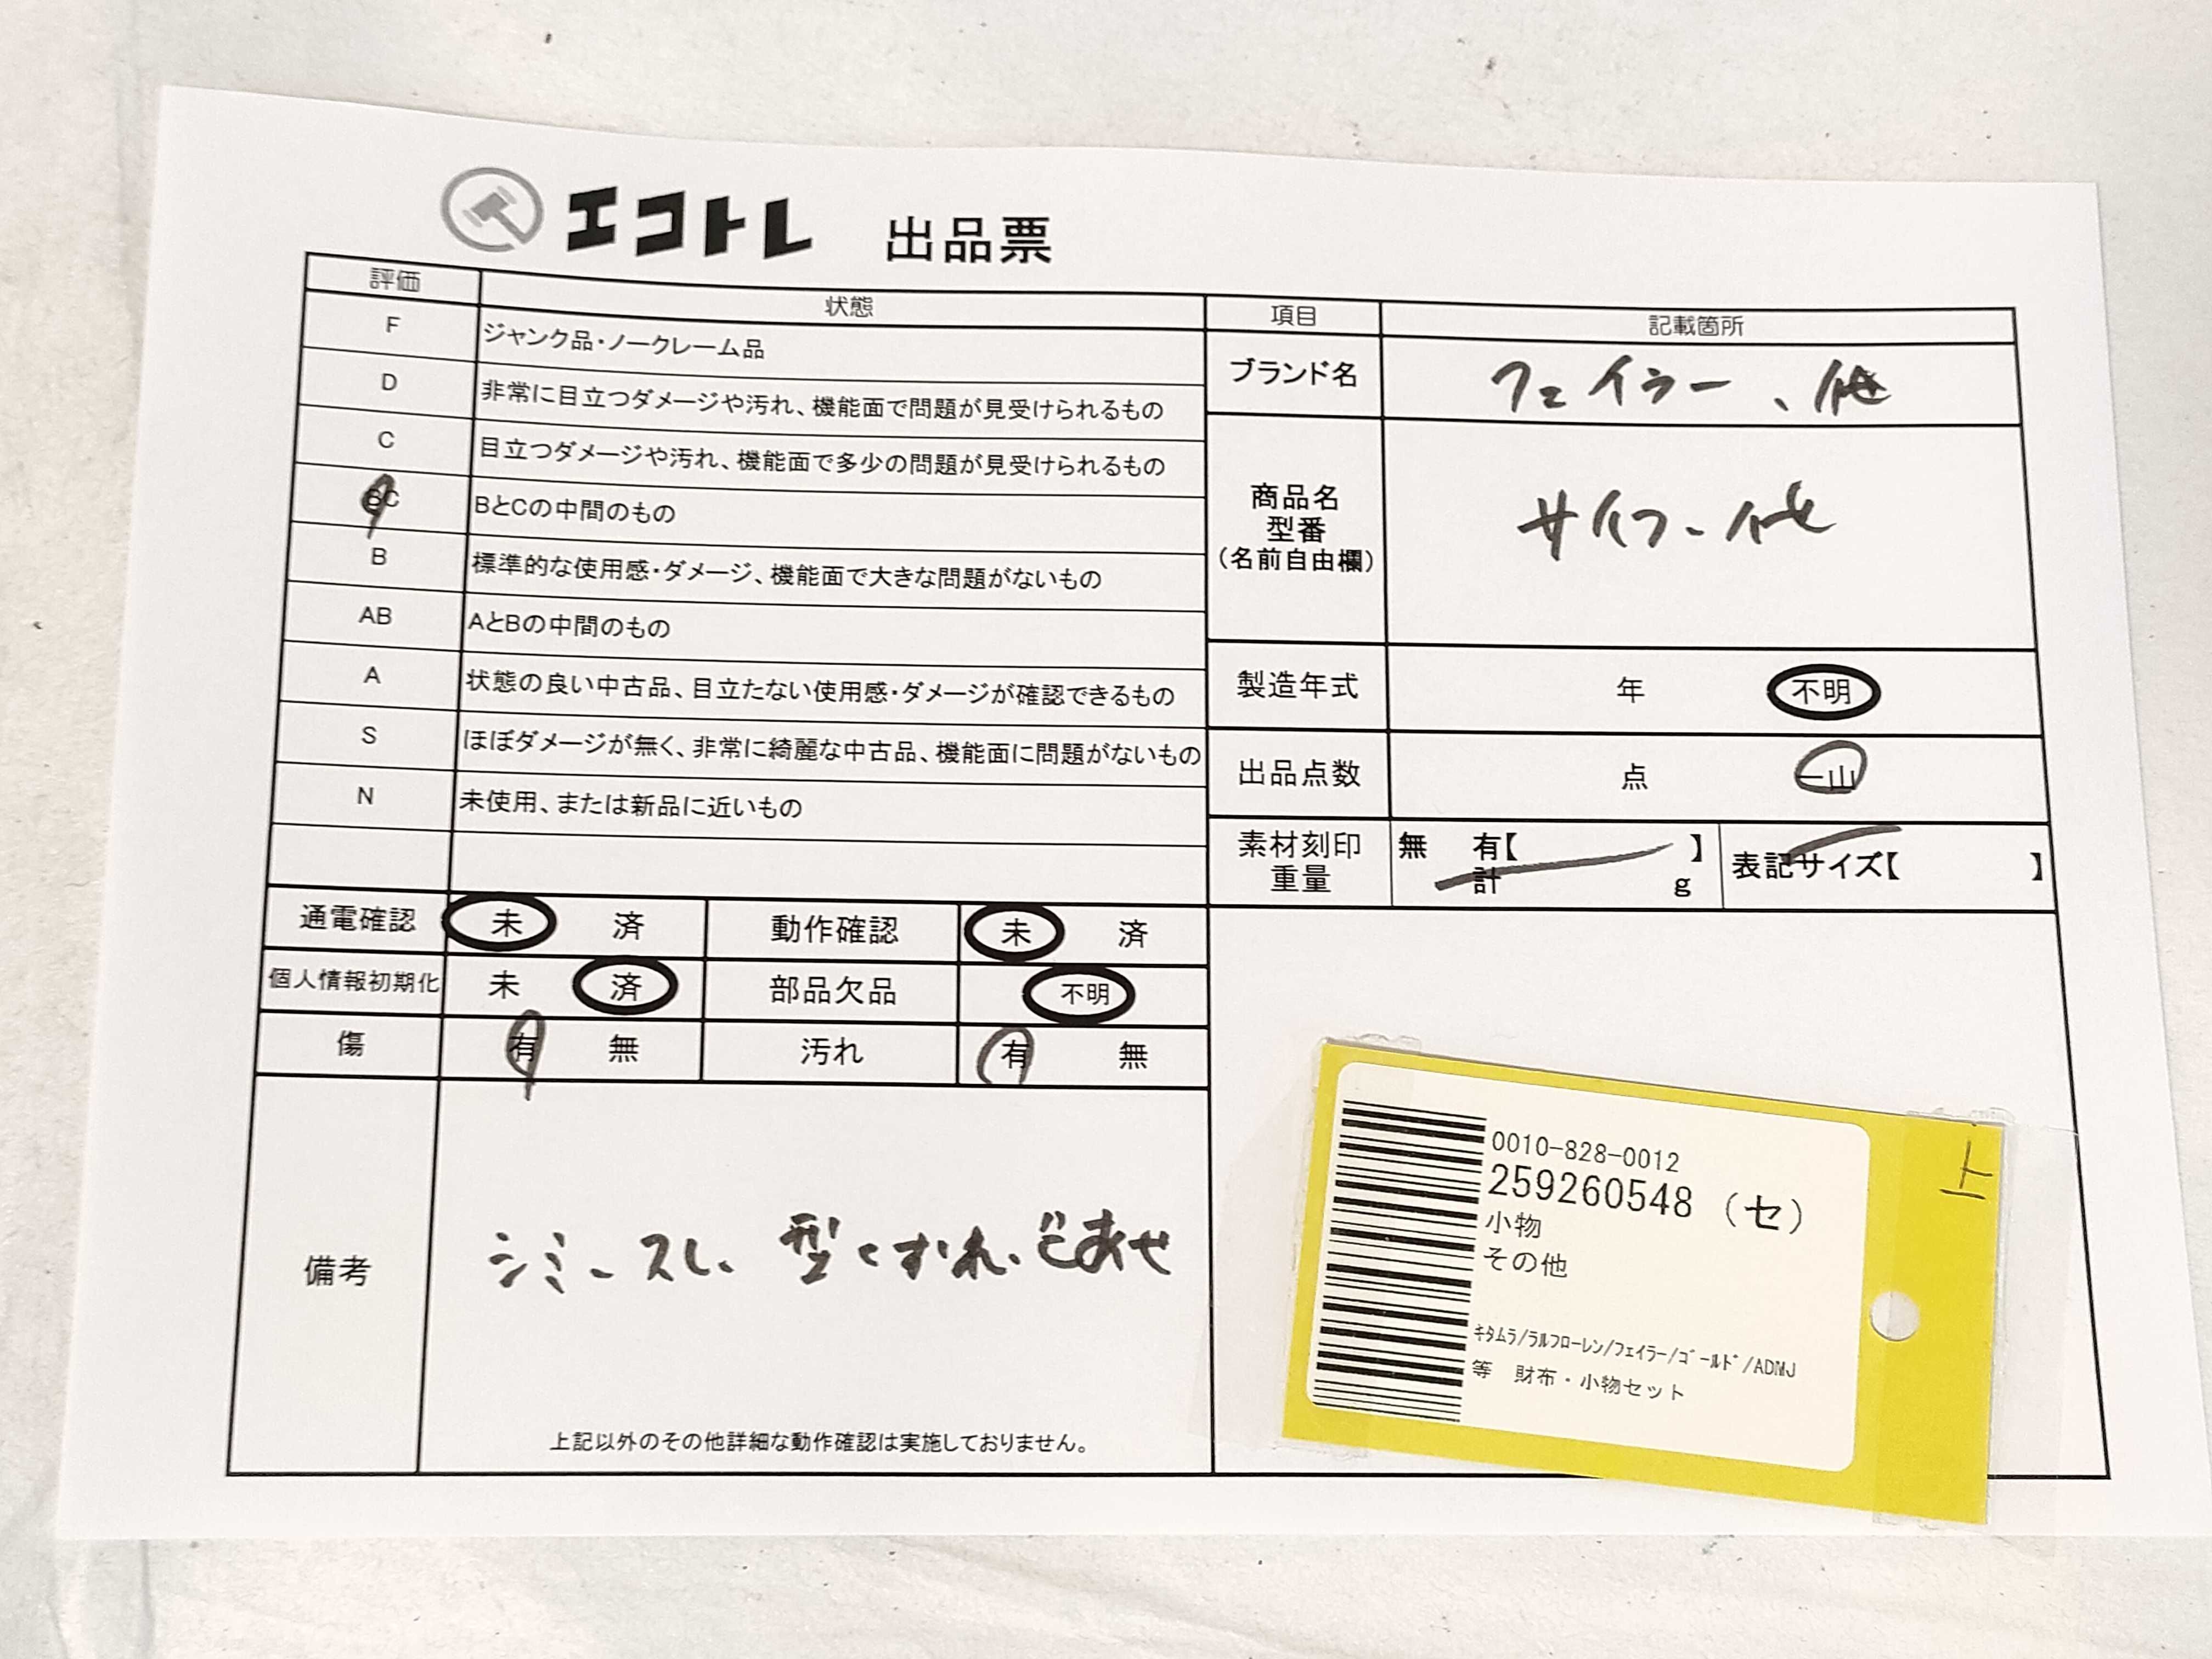 エコトレ 出品票
評価 状態
F ジャンク品・ノークレーム品
D 非常に目立つダメージや汚れ、機能面で問題が見受けられるもの
C 目立つダメージや汚れ、機能面で多少の問題が見受けられるもの
BC BとCの中間のもの
B 標準的な使用感・ダメージ、機能面で大きな問題がないもの
AB AとBの中間のもの
A 状態の良い中古品、目立たない使用感・ダメージが確認できるもの
S ほぼダメージが無く、非常に綺麗な中古品、機能面に問題がないもの
N 未使用、または新品に近いもの
項目 記載箇所
ブランド名 フェイラー、他
商品名
型番
(名前自由欄)
サイフ、他
製造年式 年 不明
出品点数 点 一山
素材刻印 無 有【 】
重量 計 g
表記サイズ【 】
通電確認 未 済 動作確認 未 済
個人情報初期化 未 済 部品欠品 不明
傷 有 無 汚れ 有 無
備考
シミ、スレ、型くずれ、色あせ
上記以外のその他詳細な動作確認は実施しておりません。
0010-828-0012
259260548 (セ)
小物
その他
ｷﾀﾑﾗ/ﾗﾙﾌﾛｰﾚﾝ/ﾌｪｲﾗｰ/ｺﾞｰﾙﾄﾞ/ADMJ
等 財布・小物セット